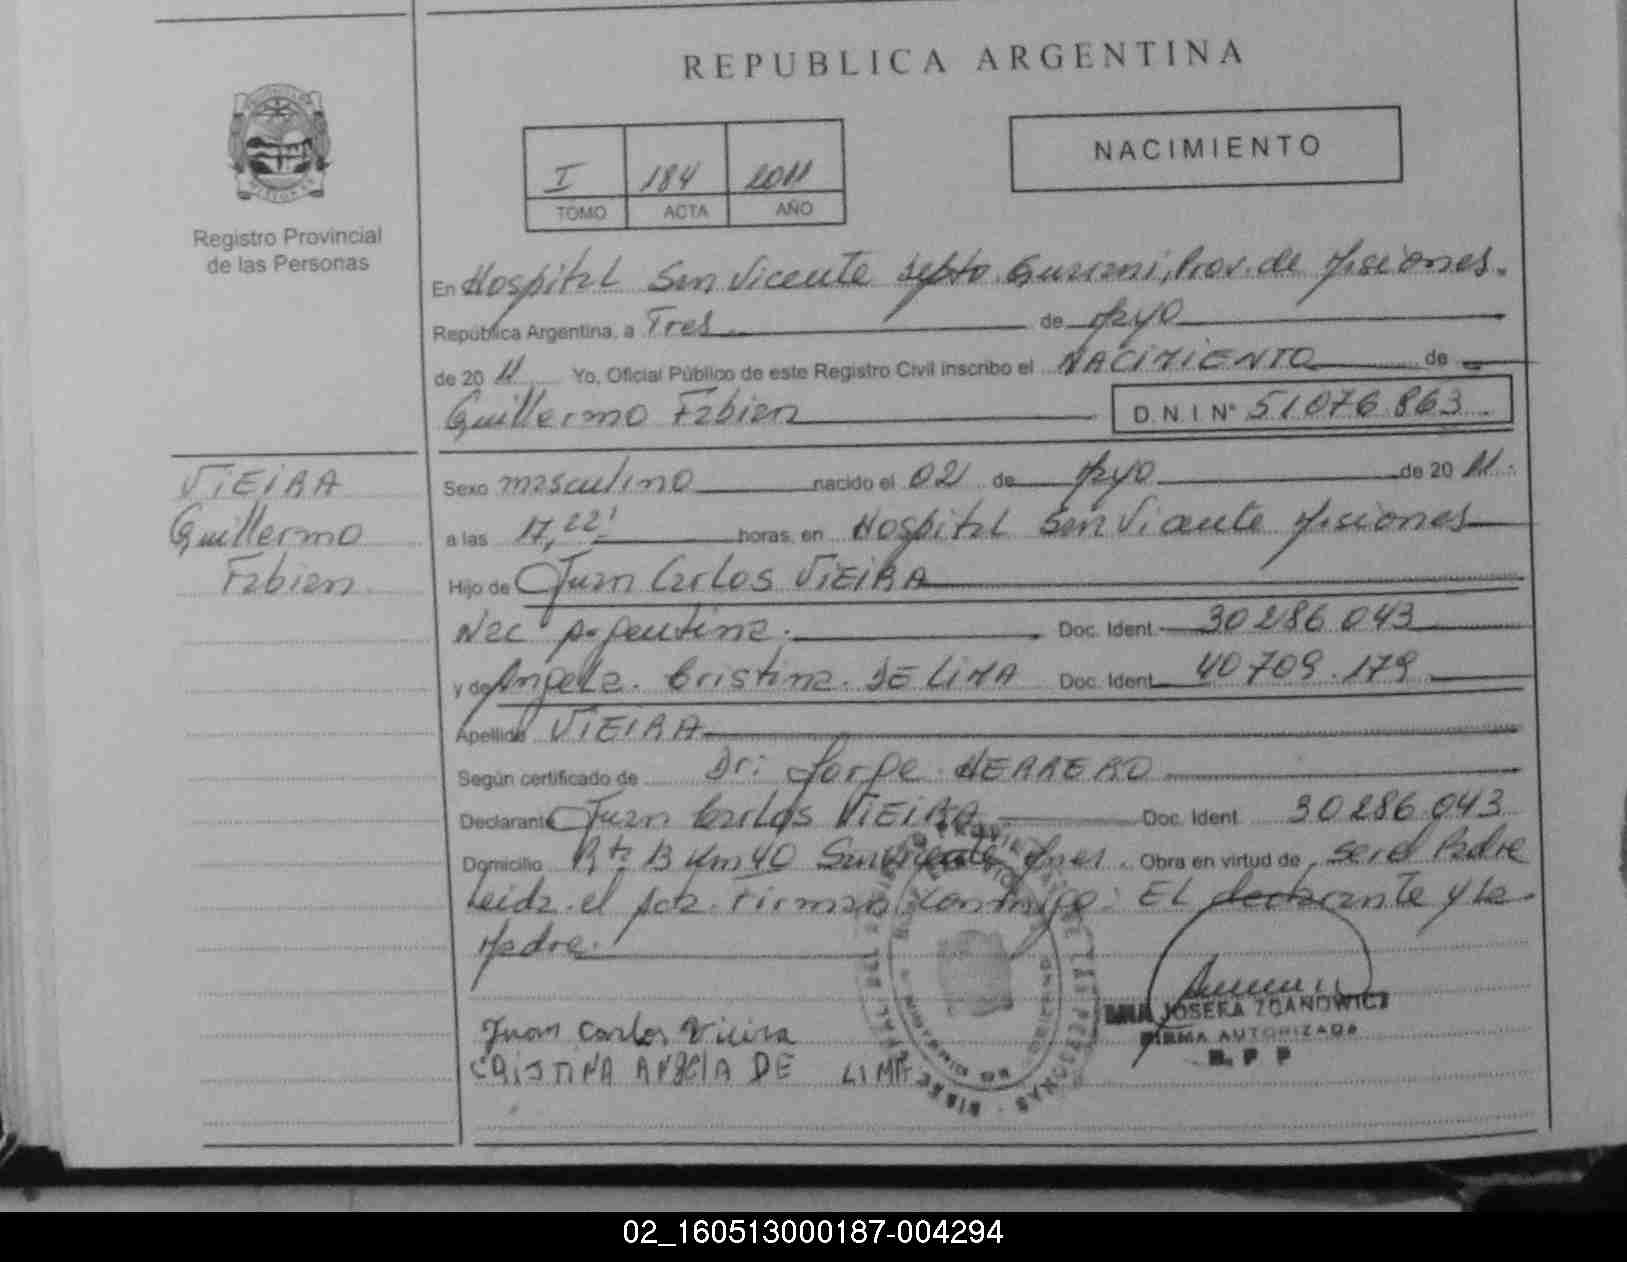 REPUBLICA ARGENTINA
NACIMIENTO
I 184 2011
TOMO ACTA AÑO
Registro Provincial
de las Personas
En Hospital San Vicente Depto. Guarani, Prov. de Misiones.
República Argentina, a Tres de Mayo
de 20 11 Yo, Oficial Público de este Registro Civil inscribo el NACIMIENTO de
Guillermo Fabian D.N.I. Nº 51 076 863
VIEIRA
Guillermo
Fabian
Sexo masculino nacido el 02 de Mayo de 20 11
a las 17,22' horas, en Hospital San Vicente Misiones
Hijo de Juan Carlos VIEIRA
Nac Argentina. Doc. Ident. 30 286 043
y de Angela Cristina DE LIMA Doc. Ident. 40 709.179
Apellido VIEIRA
Según certificado de Dr: Jorge HERRERO
Declarante Juan Carlos VIEIRA Doc. Ident. 30286.043
Domicilio Rta 13 Km 40 San Vicente Mnes. Obra en virtud de ser el Padre
Leida el Acta Firman conmigo: EL declarante y la
Madre.
Juan Carlos Vieira
CRISTINA ANGELA DE LIMA
JOSEFA ZDANOWICZ
FIRMA AUTORIZADA
R. P. P
02_160513000187-004294